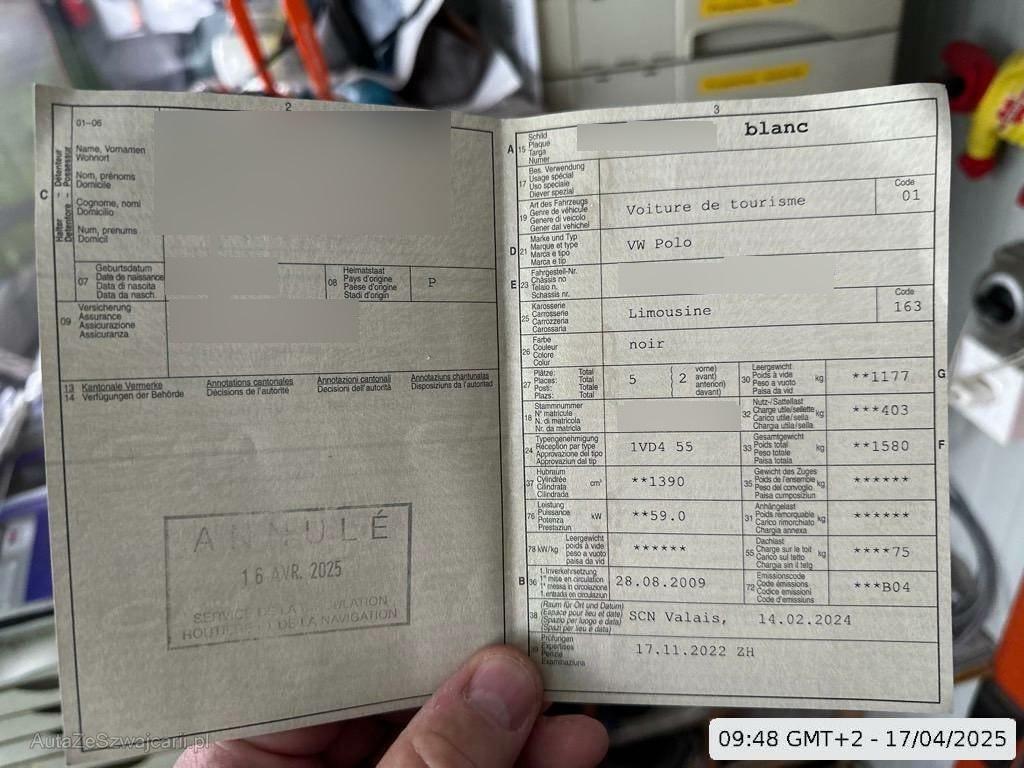 2
01-06
Name, Vornamen
Wohnort
Nom, prénoms
Domicile
Cognome, nomi
Domicilio
Num, prenums
Domicil
C
Halter - Détenteur
Detentore - Possessur
07
Geburtsdatum
Date de naissance
Data di nascita
Data da nasch.
08
Heimatstaat
Pays d'origine
Paese d'origine
Stadi d'origin
P
09
Versicherung
Assurance
Assicurazione
Assicuranza
13
14
Kantonale Vermerke
Verfügungen der Behörde
Annotations cantonales
Décisions de l'autorité
Annotazioni cantonali
Decisioni dell'autorità
Annotaziuns chantunalas
Disposiziuns da l'autoritad
ANNULÉ
16 AVR. 2025
SERVICE
ROUTI DE LA NAVIGATION
3
A 15
Schild
Plaque
Targa
Numer
blanc
17
Bes. Verwendung
Usage spécial
Uso speciale
Diever spezial
19
Art des Fahrzeugs
Genre de véhicule
Genere di veicolo
Gener dal vehichel
Voiture de tourisme
Code
01
D 21
Marke und Typ
Marque et type
Marca e tipo
Marca e tip
VW Polo
E 23
Fahrgestell-Nr.
Châssis no
Telaio n.
Schassis nr.
25
Karosserie
Carrosserie
Carrozzeria
Carossaria
Limousine
Code
163
26
Farbe
Couleur
Colore
Colur
noir
27
Plätze: Total
Places: Total
Posti: Totale
Plazs: Total
5
2
vorne)
avant)
anteriori)
davant)
30
Leergewicht
Poids à vide
Peso a vuoto
Paisa da vid
kg
**1177
G
18
Stammnummer
N° matricule
N. di matricola
Nr. da matricla
32
Nutz-/Sattellast
Charge utile/sellette
Carico utile/sella
Chargia utila/sella
kg
***403
24
Typengenehmigung
Réception par type
Approvazione del tipo
Approvaziun dal tip
1VD4 55
33
Gesamtgewicht
Poids total
Peso totale
Paisa totala
kg
**1580
F
37
Hubraum
Cylindrée
Cilindrata
Cilindrada
cm³
**1390
35
Gewicht des Zuges
Poids de l'ensemble
Peso del convoglio
Paisa cumposiziun
kg
******
76
Leistung
Puissance
Potenza
Prestaziun
kW
**59.0
31
Anhängelast
Poids remorquable
Carico rimorchiato
Chargia annexa
kg
******
78 kW/kg
Leergewicht
poids à vide
peso a vuoto
paisa da vid
******
55
Dachlast
Charge sur le toit
Carico sul tetto
Chargia sin il tetg
kg
****75
B 36
1. Inverkehrsetzung
1re mise en circulation
1a messa in circolazione
1. entrada en circulaziun
28.08.2009
72
Emissionscode
Code émissions
Codice emissioni
Code d'emissiuns
***B04
38
(Raum für Ort und Datum)
(Espace pour lieu et date)
(Spazio per luogo e data)
(Spazi per lieu e data)
SCN Valais, 14.02.2024
39
Prüfungen
Expertises
Perizie
Examinaziuns
17.11.2022 ZH
AutaZeSzwajcarii.pl
09:48 GMT+2 - 17/04/2025